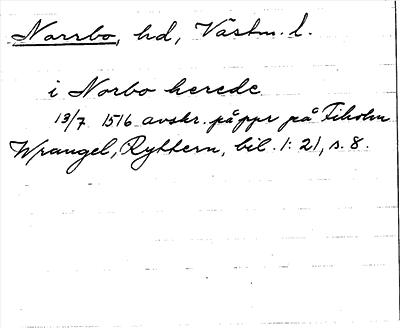 Norrbo, hd, Västm. l.
i Norbo herede
13/7 1516 avskr. på ppr på Tiholm
Wrangel, Ryttern, bil. 1:21, s. 8.